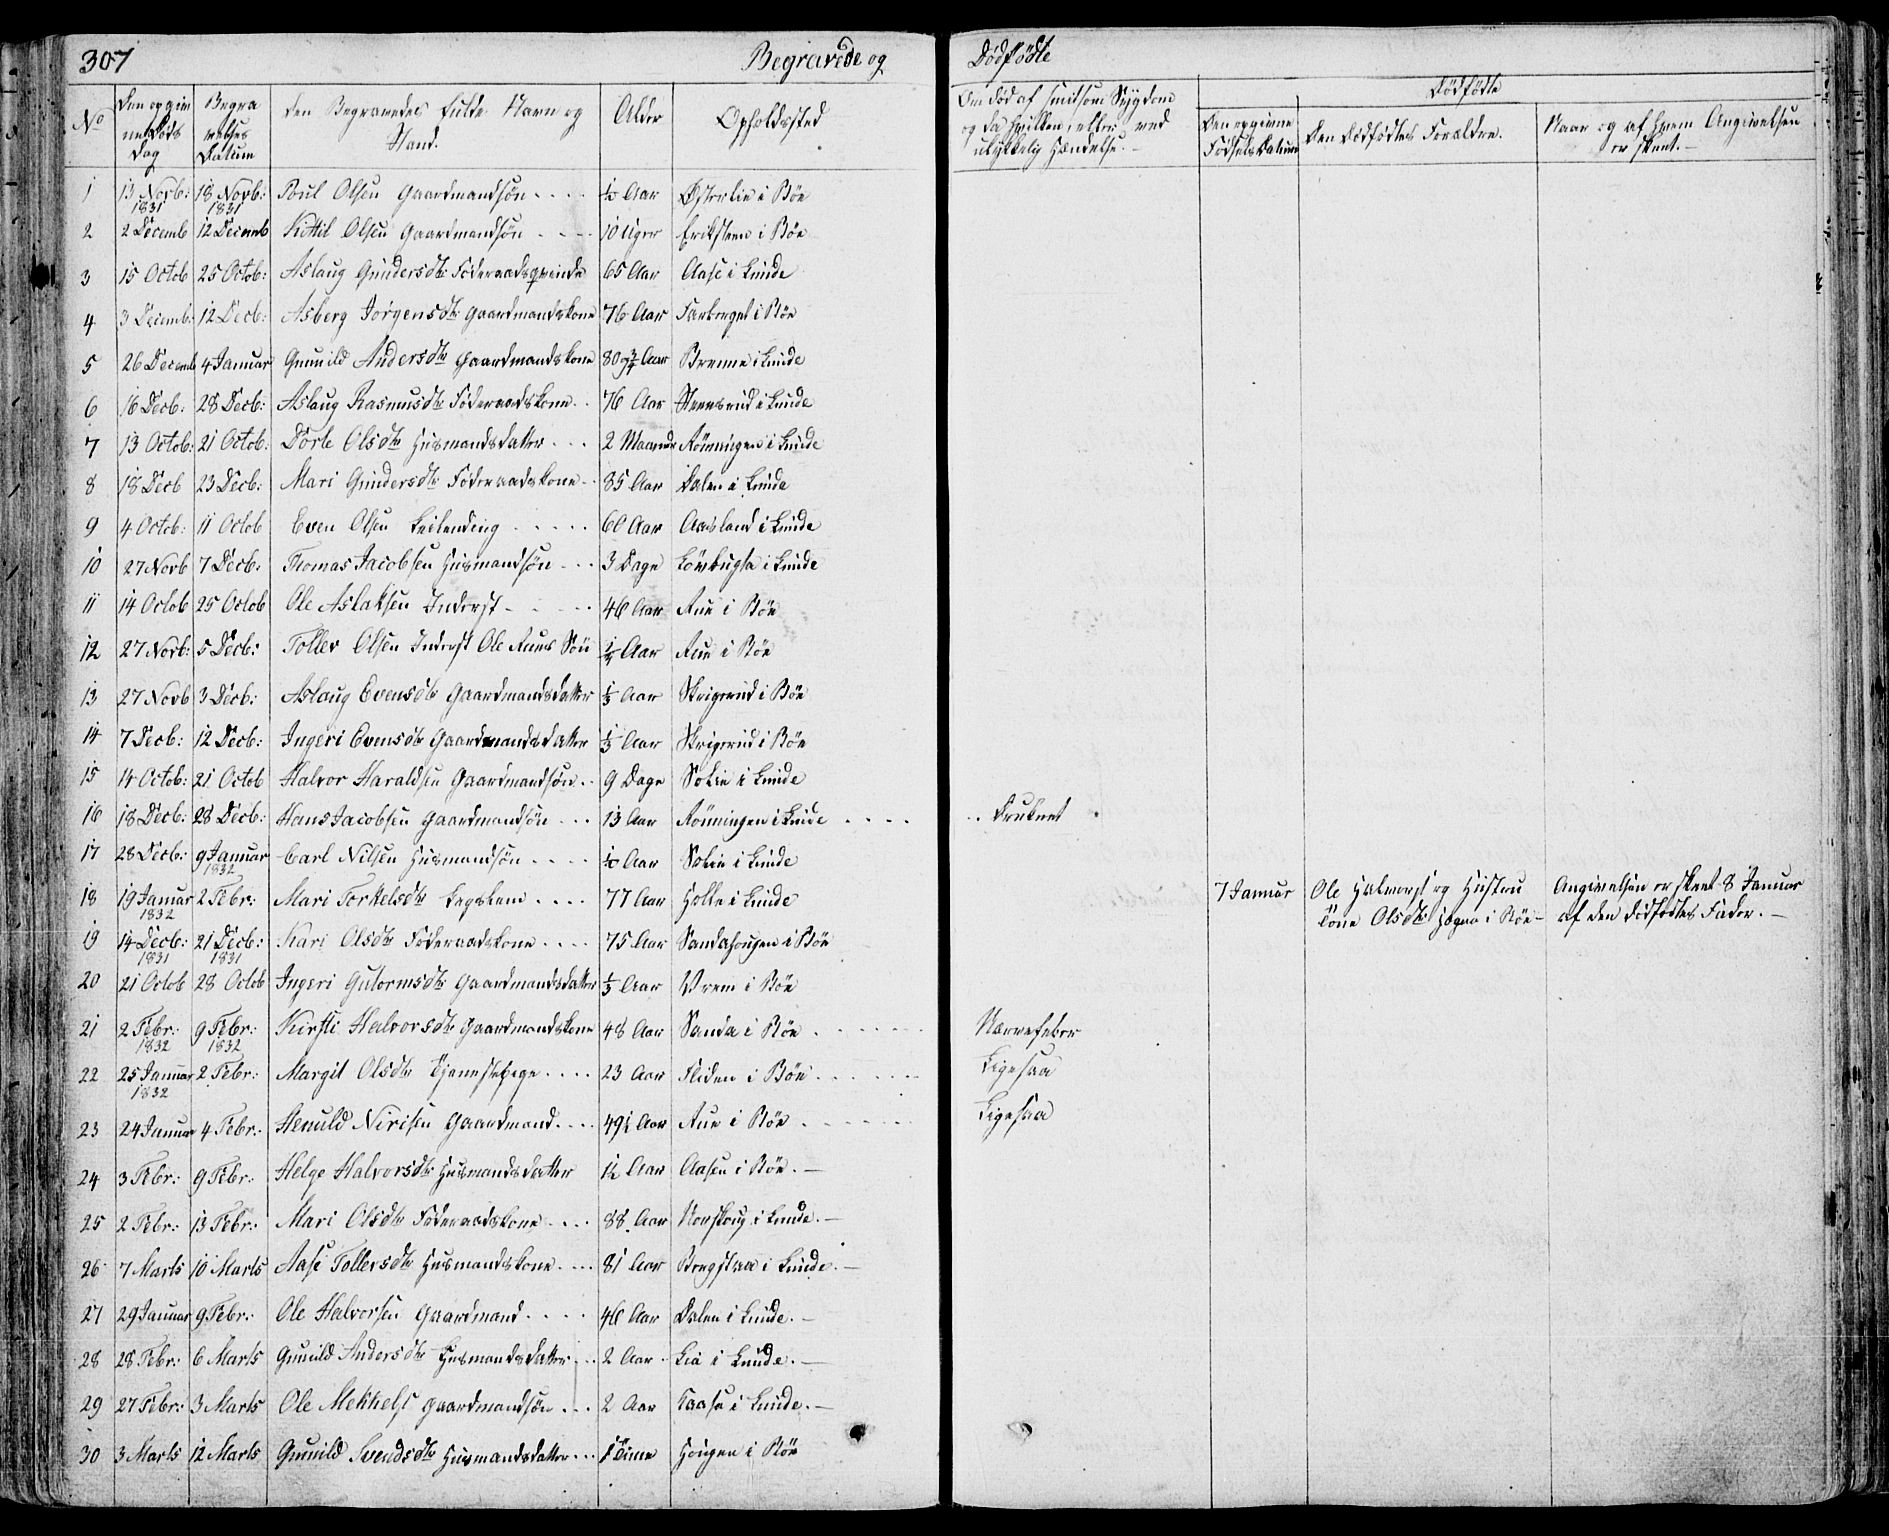 307 Begravede og Dødfødte
No
Den opgivne Døds Dag
Begravelses Datum
Den Begravedes fulde Navn og Stand.
Alder
Opholdssted
Om død af smitsom Sygdom og da hvilken, eller ved ulykkelig Hændelse. –
Dødfødte
Den opgivne Fødsels Datum
Den Dødfødtes Forældre.
Naar og af hvem Angivelsen er skeet. –
1 13 Novb: 1831 18 Novb: 1831 Poul Olsen Gaardmandsøn Aar Østerlie i Bøe
2 2 Decemb 12 Decemb Kittil Olsen Gaardmandsøn 10 Uger Eriksteen i Bøe
3 15 Octob 25 Octob: Aslaug Gundersdtr Føderaadsqvinde 65 Aar Aase i Lunde
4 3 Decemb: 12 Decb: Asberg Jørgensdtr Gaardmandskone 76 Aar Forberget i Bøe
5 26 Decemb 4 Januar Gunild Andersdtr Gaardmandskone 80 3/4 Aar Brenne i Lunde
6 16 Decb: 28 Decb: Aslaug Rasmusdtr Føderaadskone 76 Aar Steensrud i Lunde
7 13 Octob: 21 Octob: Dorte Olsdtr Husmandsdatter 2 Maaneder Rönningen i Lunde
8 18 Decb 23 Decb: Mari Gundersdtr Føderaadskone 85 Aar Dalen i Lunde
9 4 Octob: 11 Octob Even Olsen Leilending 60 Aar Aasland i Lunde
10 27 Novb 7 Decb: Thomas Jacobsen Husmandsøn 3 Dage Lövbugta i Lunde
11 14 Octob 25 Octob Ole Aslaksen Inderst 46 Aar Rue i Bøe
12 27 Novb: 5 Decb: Tollev Olsen Inderst Ole Rues Søn Aar Rue i Bøe
13 27 Novb 3 Decb: Aslaug Evensdtr Gaardmandsdatter 1/3 Aar Skrigerud i Bøe
14 7 Decb: 12 Decb: Ingeri Evensdtr Gaardmandsdatter 1/3 Aar Skrigerud i Bøe
15 14 Octob: 21 Octob Halvor Haraldsen Gaardmandsøn 9 Dage Solie i Lunde
16 18 Decb: 28 Decb: Hans Jacobsen Gaardmandsøn 13 Aar Rönningen i Lunde Druknet
17 28 Decb: 9 Januar 1832 Carl Nilsen Husmandsøn Aar Solie i Lunde
18 19 Januar 1832 2 Febr: Mari Torkelsdtr Legslem 77 Aar Holte i Lunde
7 Januar Ole Halvorss: og Hustru Angivelsen er skeet 8 Januar
Töne Olsdtr Hogna i Bøe – af den Dødfødtes Fader. –
19 14 Decb: 1831 21 Decb: 1831 Kari Olsdtr Føderaadskone 75 Aar Sandahougen i Bøe
20 21 Octob 28 Octob Ingeri Gutormsdtr Gaardmandsdatter 1/3 Aar Vreim i Bøe
21 2 Febr: 1832 9 Febr: 1832 Kirsti Halvorsdtr Gaardmandskone 48 Aar Sanda i Bøe Nervefeber
22 25 Januar 1832 2 Febr: Margit Olsdtr Tjenestepige 23 Aar Sliden i Bøe Ligesaa
23 24 Januar 4 Febr: Henuld Nirisen Gaardmand 49½ Aar Rue i Bøe Ligesaa
24 3 Febr: 9 Febr: Helge Halvorsdtr Husmandsdatter 1½ Aar Aasen i Bøe. –
25 2 Febr: 13 Febr: Mari Olsdtr Føderaadskone 88 Aar Norskoug i Lunde. –
26 7 Marts 10 Marts Aase Tollefsdtr Husmandskone 81 Aar Bregstaa i Lunde. –
27 29 Januar 9 Febr: Ole Halvorsen Gaardmand 46 Aar Dalen i Lunde. –
28 28 Febr: 6 Marts Gunild Andersdtr Husmandsdatter 2 Aar Lia i Lunde. –
29 27 Febr: 3 Marts Ole Mekkels: Gaardmandsøn 2 Aar Kaasa i Lunde. –
30 3 Marts 12 Marts Gunild Svendsdtr Husmandsdatter 1 Time Hougen i Bøe